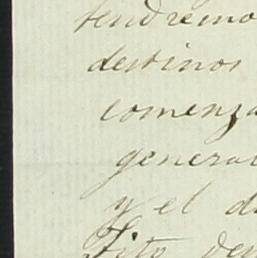 tendremo
destinos
comenza
genera
y el d
Sito den